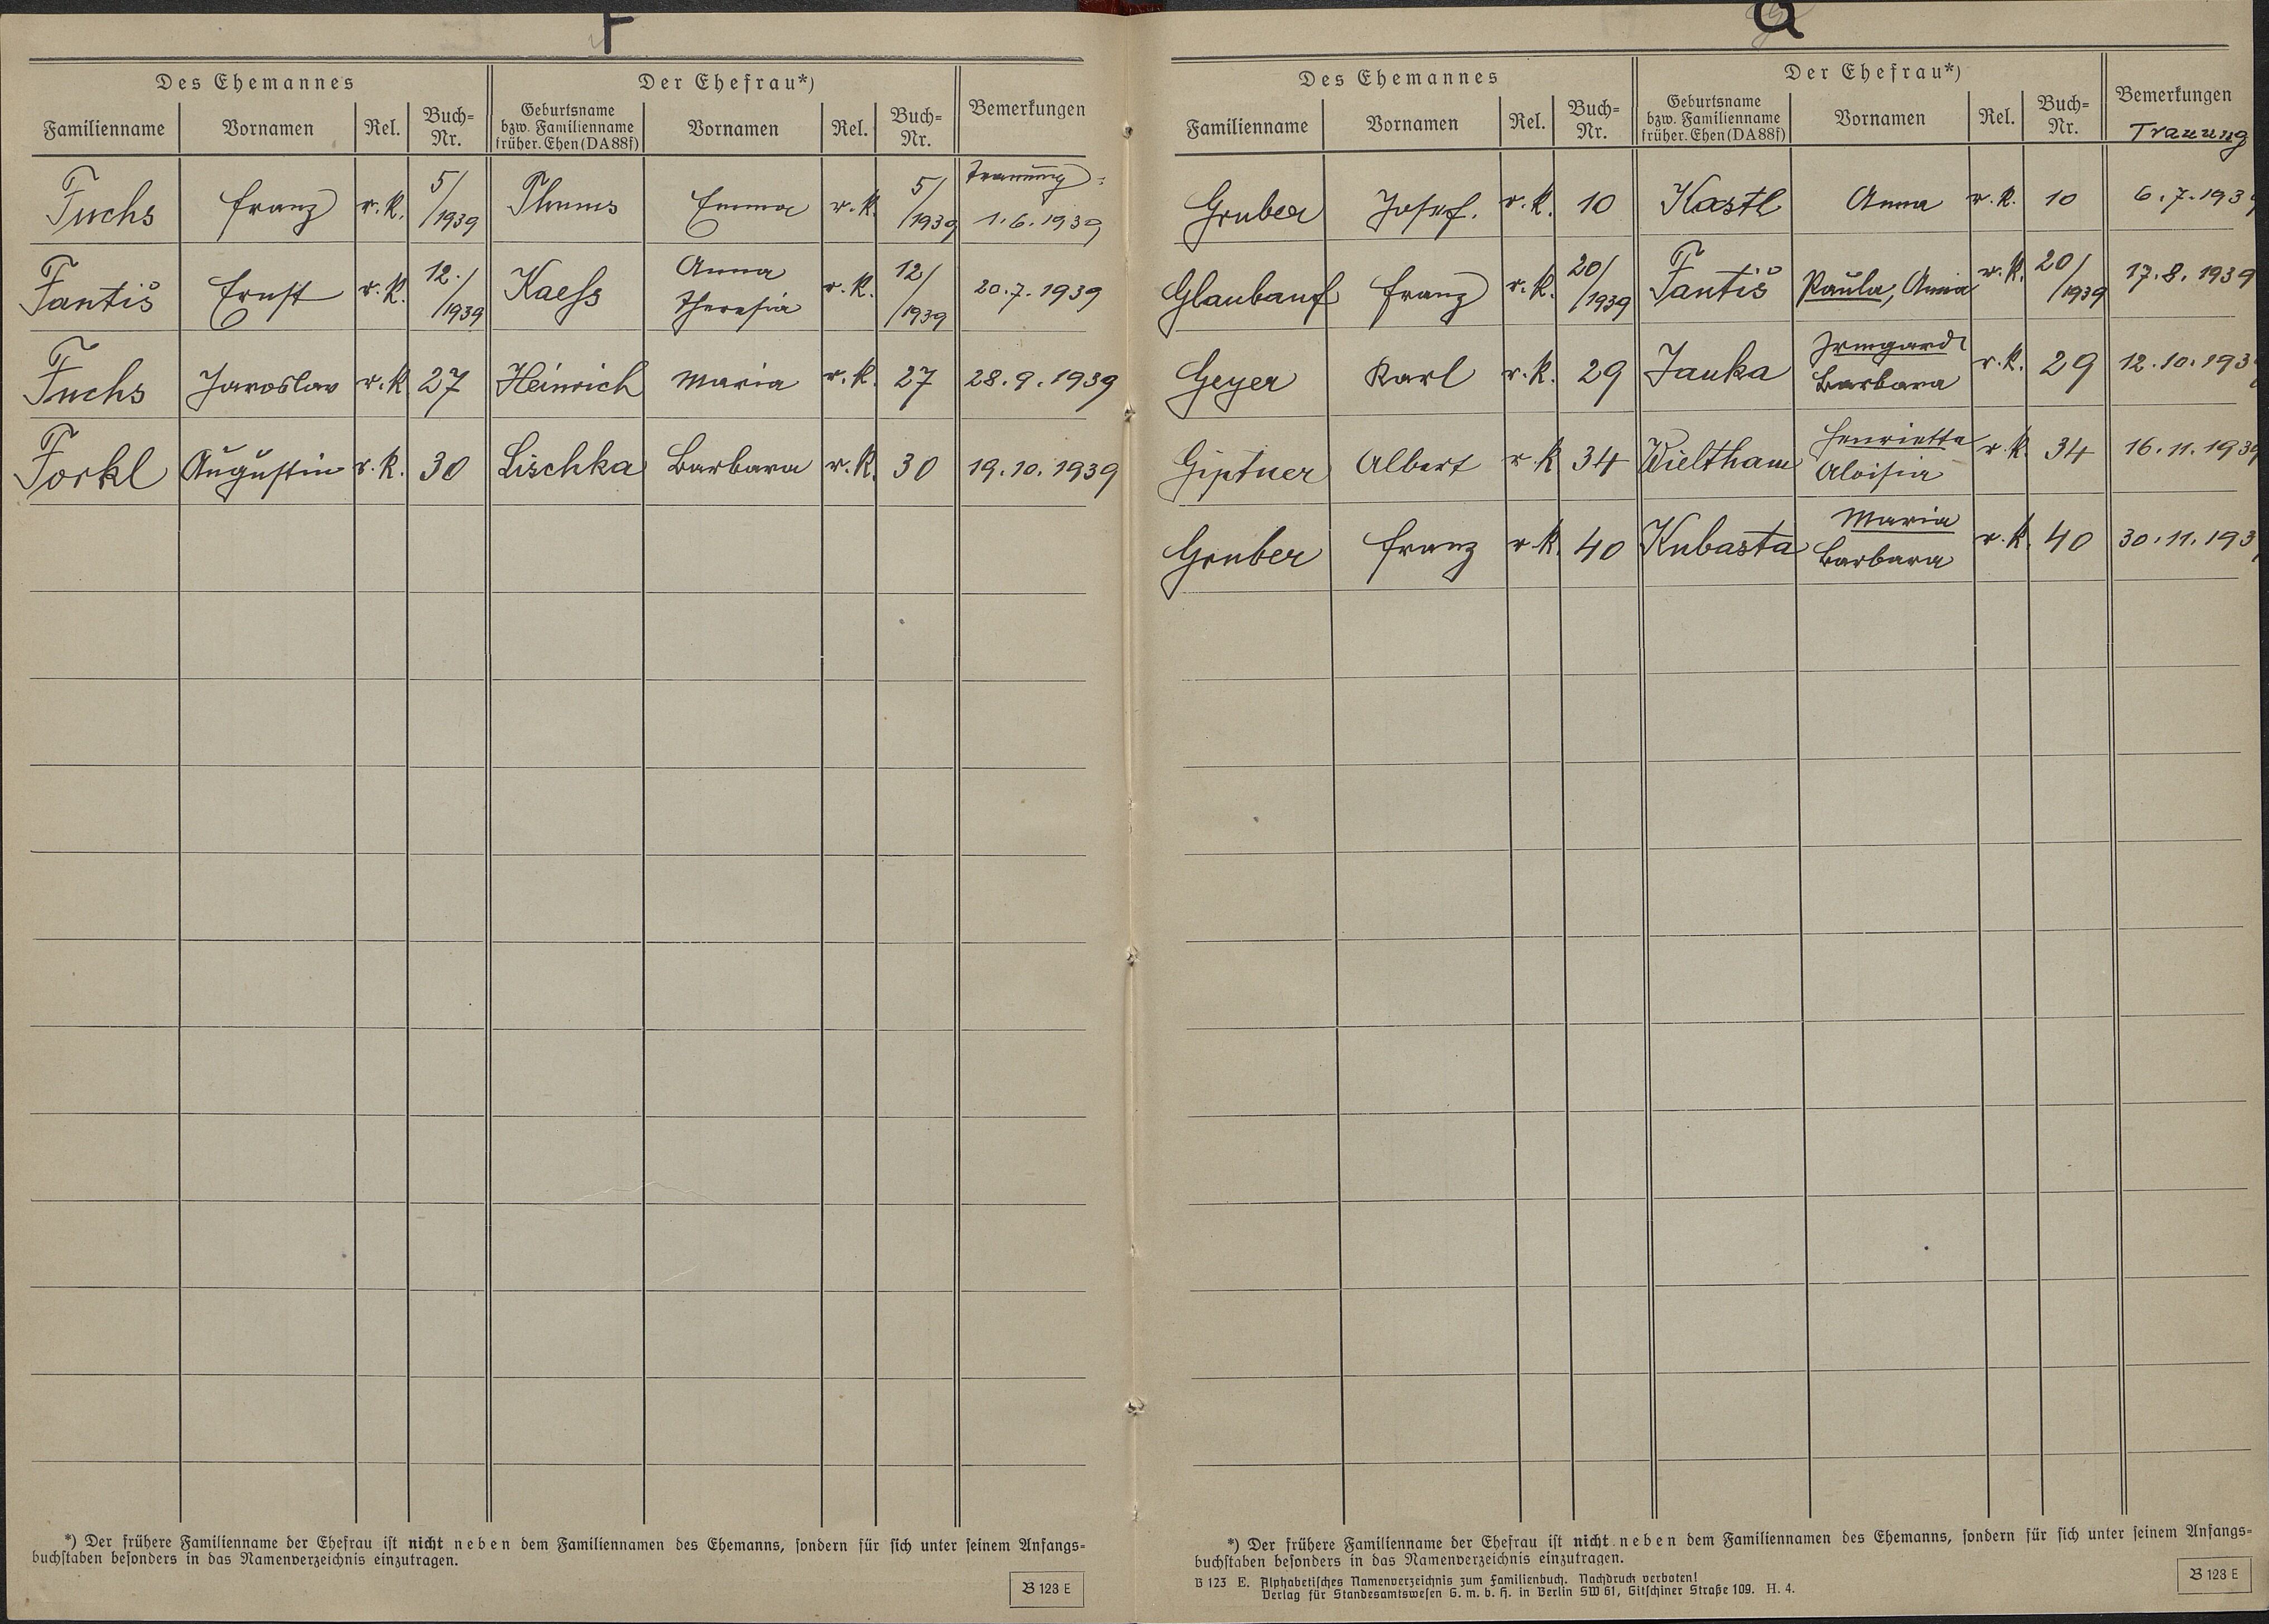 F
Des Ehemannes Der Ehefrau*) Bemerkungen
Familienname Vornamen Rel. Buch=Nr. Geburtsname bzw. Familienname früher. Ehen (DA 88f) Vornamen Rel. Buch=Nr.
Trauung:
Fuchs Franz r.k. 5/1939 Emma r.k. 5/1939 1.6.1939
Fantiš Ernst r.k. 12./1939 Kaess Anna Theresia r.k. 12/1939 20.7.1939
Fuchs Jaroslav r.k. 27 Heinrich Maria r.k. 27 28.9.1939
Forkl Augustin r.k. 30 Lischka Barbara r.k. 30 19.10.1939
*) Der frühere Familienname der Ehefrau ist nicht neben dem Familiennamen des Ehemanns, sondern für sich unter seinem Anfangs=
buchstaben besonders in das Namenverzeichnis einzutragen.
B 123 E
G
Des Ehemannes Der Ehefrau*) Bemerkungen
Familienname Vornamen Rel. Buch=Nr. Geburtsname bzw. Familienname früher. Ehen (DA 88f) Vornamen Rel. Buch=Nr. Trauung
Gruber Josef. r.k. 10 Kastl Anna r.k. 10 6.7.1939
Glaubauf Franz r.k. 20/1939 Fantiš Paula, Anna r.k. 20/1939 17.8.1939
Geyer Karl r.k. 29 Janka Irmgard Barbara r.k. 29 12.10.193
Giptner Albert r.k 34 Wieltham Henrietta Aloisia r.k. 34 16.11.1939
Gruber Franz r.k. 40 Kubasta Maria Barbara r.k. 40 30.11.193
*) Der frühere Familienname der Ehefrau ist nicht neben dem Familiennamen des Ehemanns, sondern für sich unter seinem Anfangs=
buchstaben besonders in das Namenverzeichnis einzutragen.
B 123 E. Alphabetisches Namenverzeichnis zum Familienbuch. Nachdruck verboten!
Verlag für Standesamtswesen G. m. b. H. in Berlin SW 61, Gitschiner Straße 109. H. 4.
B 123 E